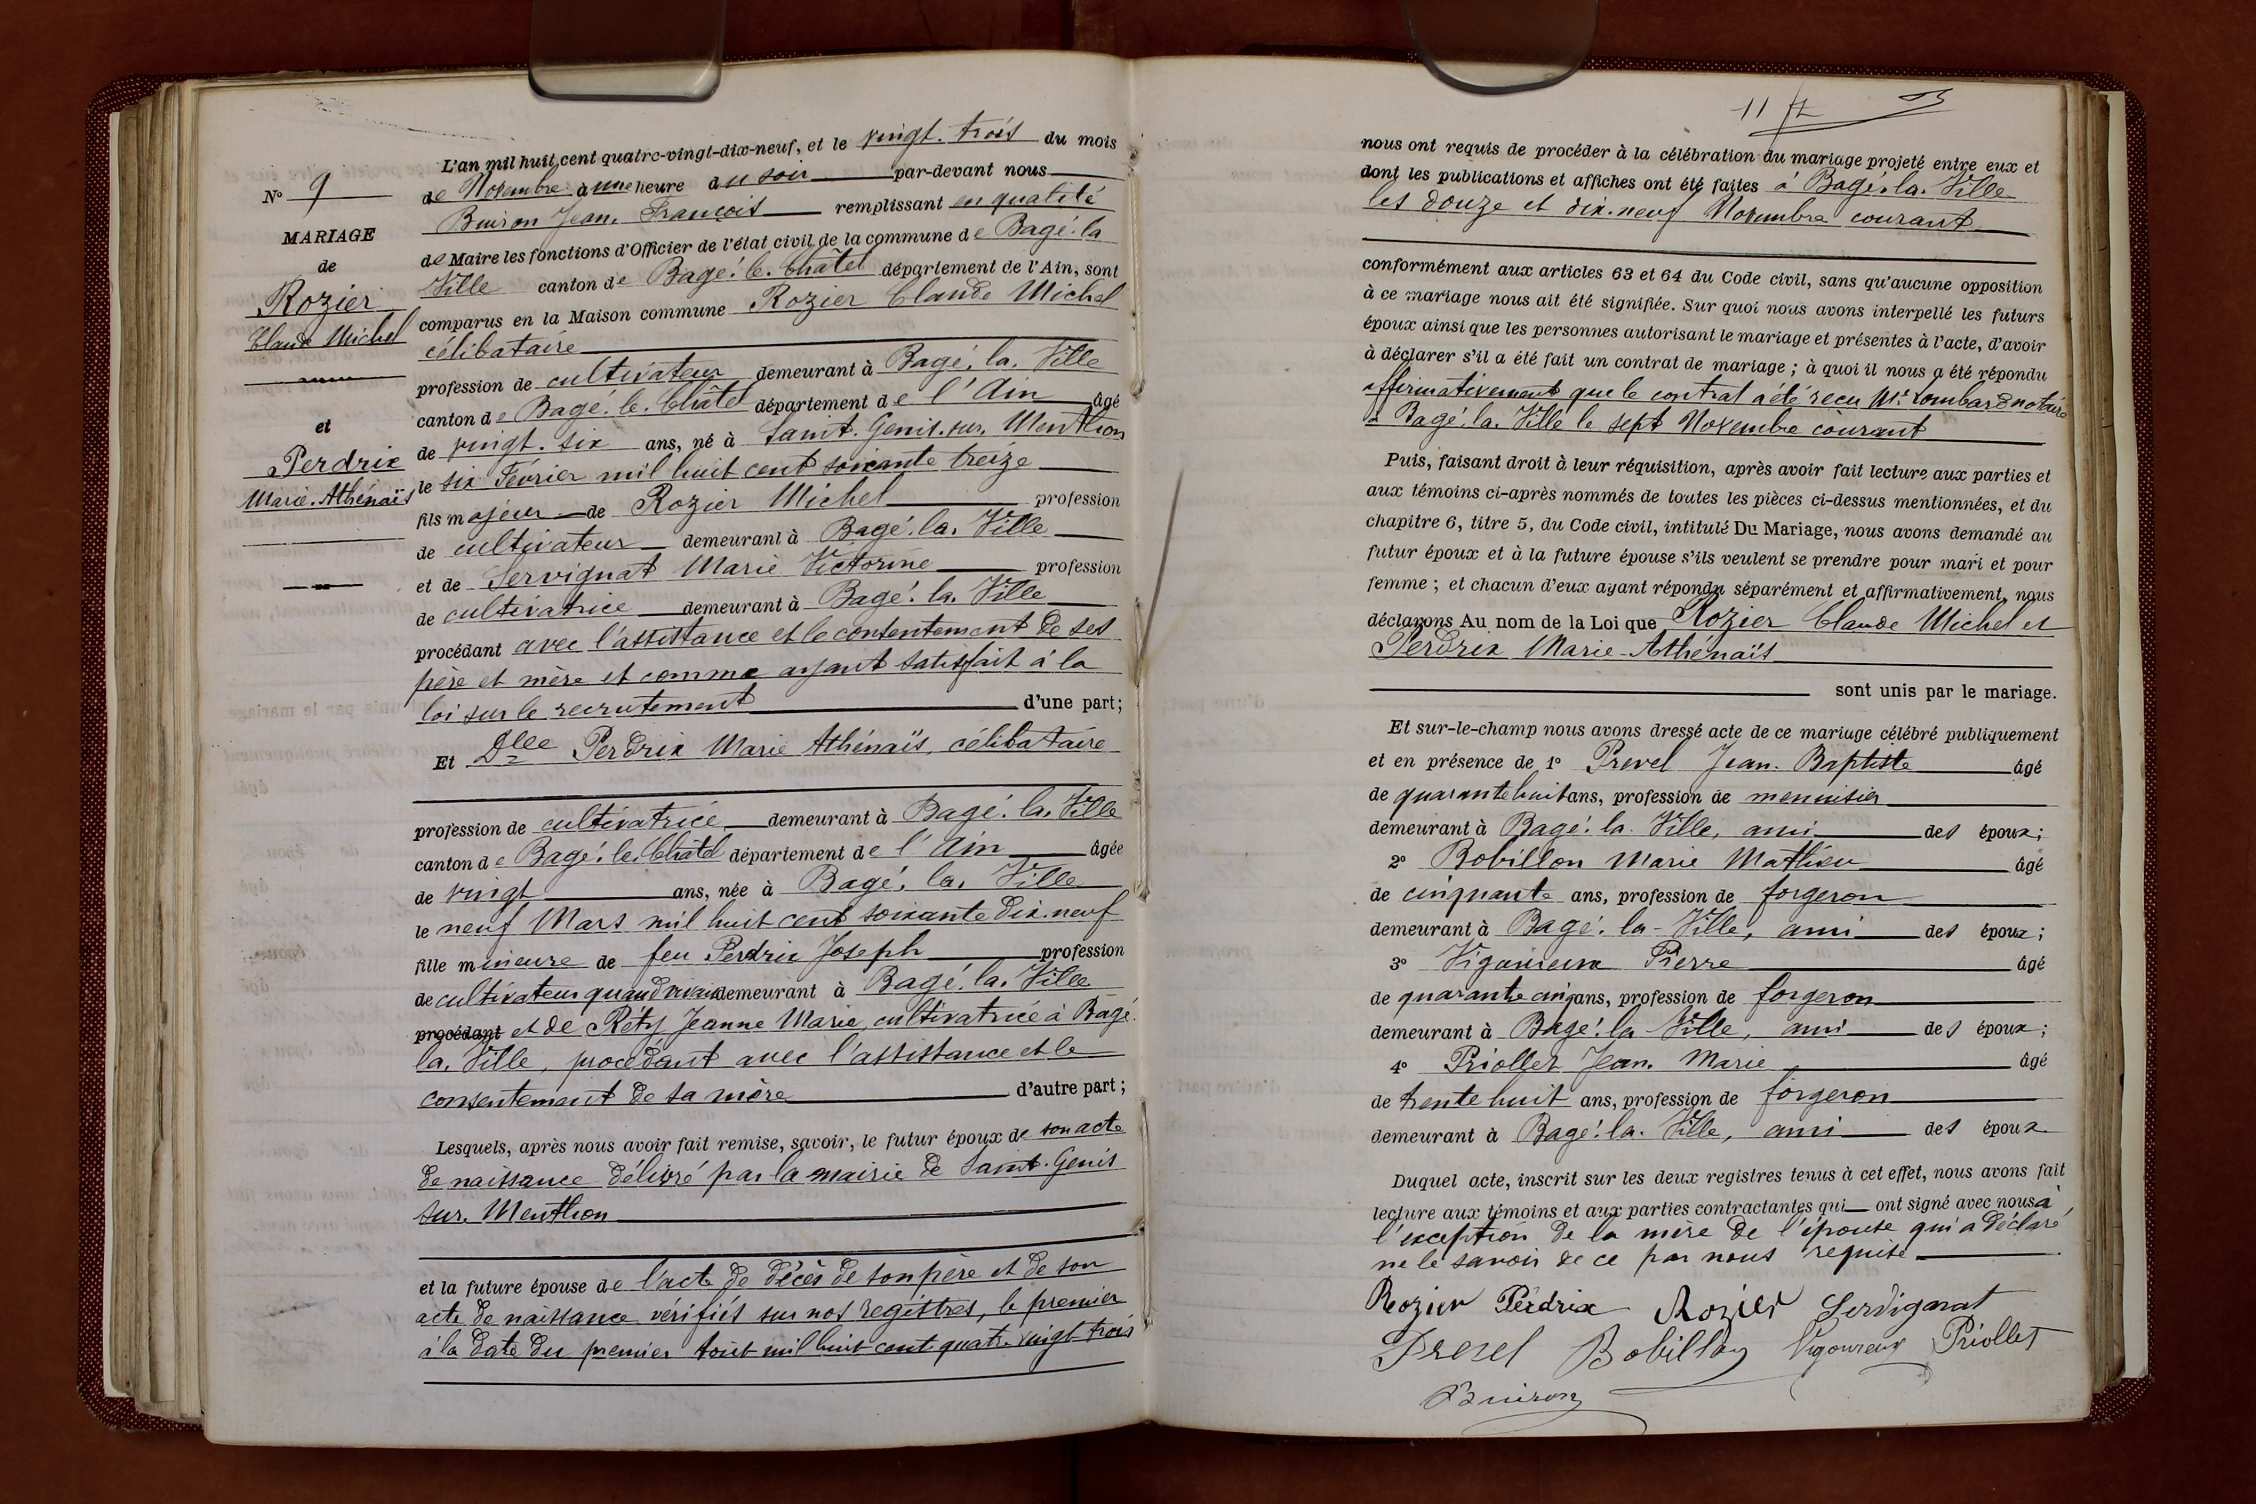 N° 9
MARIAGE
de
Rozier
Claude Michel
et
Perdrix
Marie-Athénaïs
L'an mil huit cent quatre-vingt-dix-neuf, et le vingt-trois du mois
de Novembre à une heure du soir par-devant nous
Buiron Jean François remplissant en qualité
de Maire les fonctions d'Officier de l'état civil de la commune de Bagé-la
Ville canton de Bagé-le-Châtel département de l'Ain, sont
comparus en la Maison commune Rozier Claude Michel
célibataire
profession de cultivateur demeurant à Bagé-la-Ville
canton de Bagé-le-Châtel département de l'Ain âgé
de vingt-six ans, né à Saint-Genis-sur-Menthon
le six Février mil huit cent soixante treize
fils majeur de Rozier Michel profession
de cultivateur demeurant à Bagé-la-Ville
et de Servignat Marie Victorine profession
de cultivatrice demeurant à Bagé-la-Ville
procédant avec l'assistance et le consentement de ses
père et mère et comme ayant satisfait à la
loi sur le recrutement d'une part;
Et Dlle Perdrix Marie Athénaïs, célibataire
profession de cultivatrice demeurant à Bagé-la-Ville
canton de Bagé-le-Châtel département de l'Ain âgée
de vingt ans, née à Bagé-la-Ville
le neuf Mars mil huit cent soixante dix-neuf
fille mineure de feu Perdrix Joseph profession
de cultivateur quand vivait demeurant à Bagé-la-Ville
procédant et de Réty Jeanne Marie, cultivatrice à Bagé-
la-Ville, procédant avec l'assistance et le
consentement de sa mère d'autre part;
Lesquels, après nous avoir fait remise, savoir, le futur époux de son acte
de naissance délivré par la mairie de Saint-Genis
sur-Menthon
et la future épouse de l'acte de décès de son père et de son
acte de naissance vérifiés sur nos registres, le premier
à la date du premier Août mil huit cent quatre vingt trois
11
nous ont requis de procéder à la célébration du mariage projeté entre eux et
dont les publications et affiches ont été faites à Bagé-la-Ville
les douze et dix-neuf Novembre courant
conformément aux articles 63 et 64 du Code civil, sans qu'aucune opposition
à ce mariage nous ait été signifiée. Sur quoi nous avons interpellé les futurs
époux ainsi que les personnes autorisant le mariage et présentes à l'acte, d'avoir
à déclarer s'il a été fait un contrat de mariage; à quoi il nous a été répondu
affirmativement que le contrat a été reçu Me Lombard notaire
à Bagé-la-Ville le sept Novembre courant
Puis, faisant droit à leur réquisition, après avoir fait lecture aux parties et
aux témoins ci-après nommés de toutes les pièces ci-dessus mentionnées, et du
chapitre 6, titre 5, du Code civil, intitulé Du Mariage, nous avons demandé au
futur époux et à la future épouse s'ils veulent se prendre pour mari et pour
femme; et chacun d'eux ayant répondu séparément et affirmativement, nous
déclarons Au nom de la Loi que Rozier Claude Michel et
Perdrix Marie-Athénaïs
sont unis par le mariage.
Et sur-le-champ nous avons dressé acte de ce mariage célébré publiquement
et en présence de 1° Prevel Jean-Baptiste âgé
de quarante huit ans, profession de menuisier
demeurant à Bagé-la-Ville, ami des époux;
2° Bobillon Marie Mathieu âgé
de cinquante ans, profession de forgeron
demeurant à Bagé-la-Ville, ami des époux;
3° Vigoureux Pierre âgé
de quarante cinq ans, profession de forgeron
demeurant à Bagé-la-Ville, ami des époux;
4° Priollet Jean-Marie âgé
de trente huit ans, profession de forgeron
demeurant à Bagé-la-Ville, ami des époux
Duquel acte, inscrit sur les deux registres tenus à cet effet, nous avons fait
lecture aux témoins et aux parties contractantes qui ont signé avec nous à
l'exception de la mère de l'épouse qui a déclaré
ne le savoir de ce par nous requise
Rozier Perdrix Rozier Servignat
Prevel Bobillon Vigoureux Priollet
Buiron